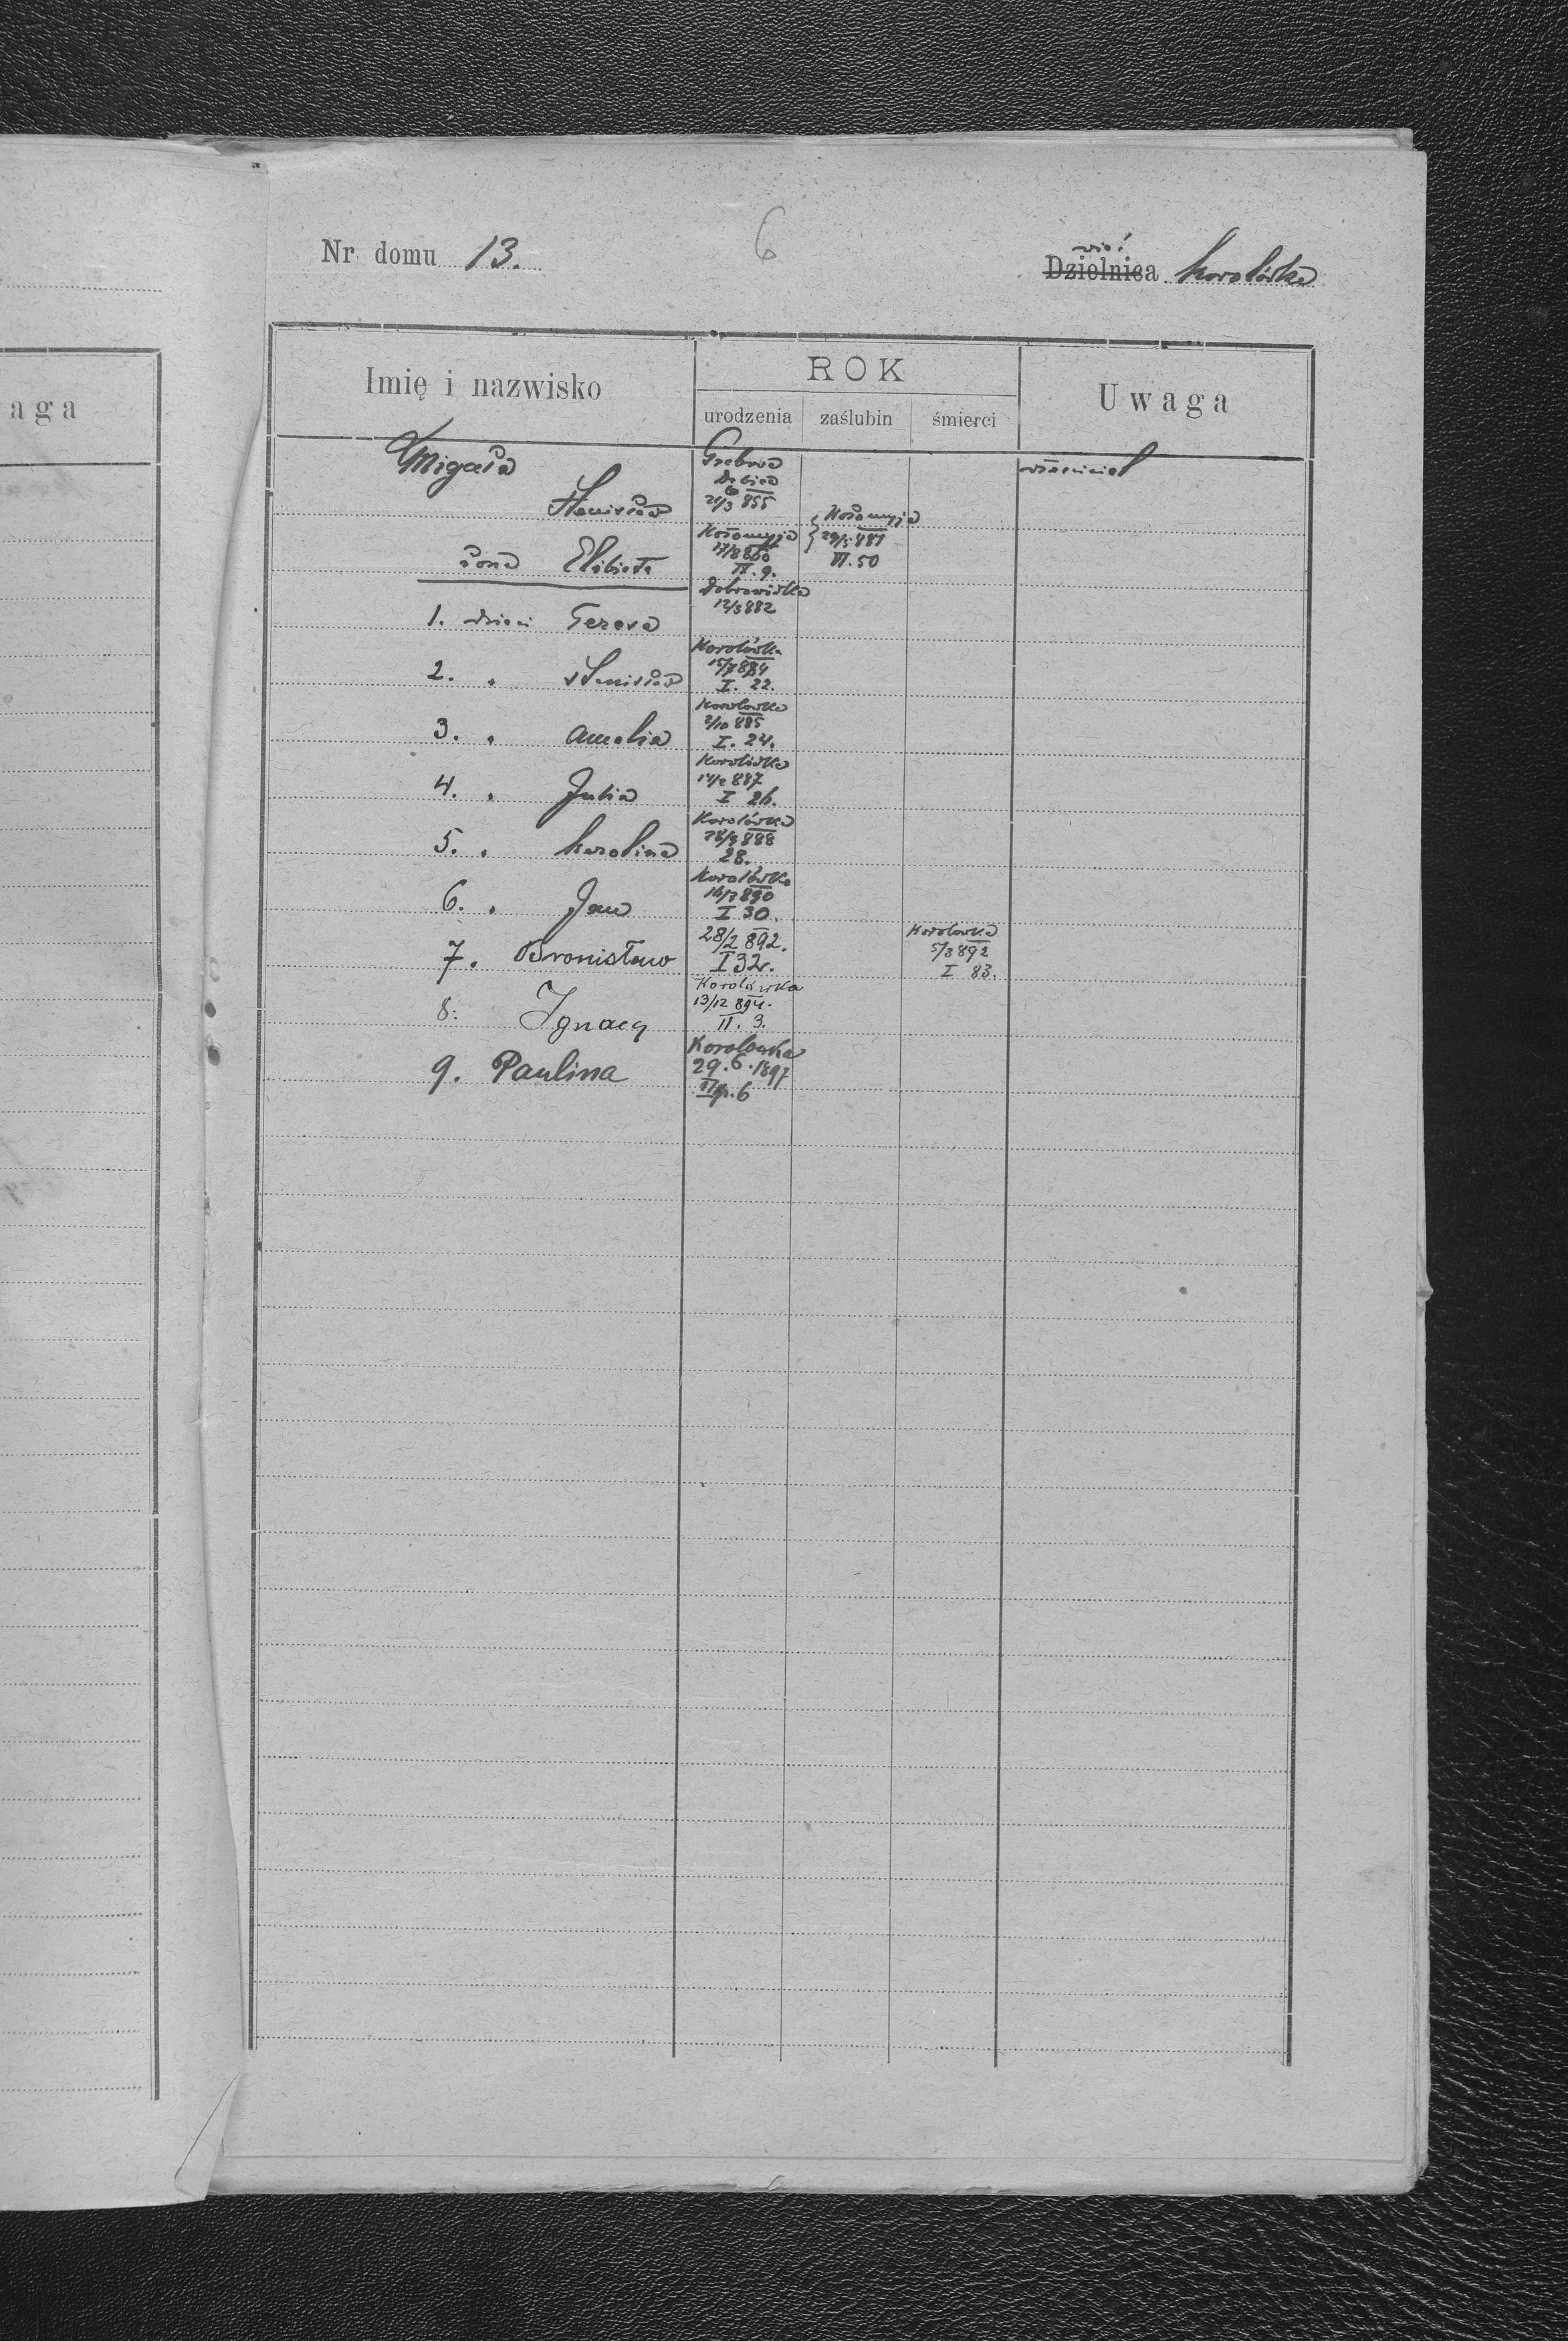 aga
Nr domu 13.
6
wieś
Dzielnica Korolówka
Imię i nazwisko
ROK
urodzenia zaślubin śmierci
Uwaga
Migała
właściciel
Stanisław
21/3 855
Kołomyja
29/5 881
VI. 50
żona Elżbieta
Kołomyja
17/8 860
IV. 9.
1. dzieci Teresa
12/3 882
2. " Stanisław
Korolówka
15/7 884
I. 22.
3. " Amalia
Korolowka
2/10 885
I. 24.
4. " Julia
Korolówka
14/2 887
I 26.
5. " Karolina
Korolówka
28/9 888
28.
6. " Jan
Korolówka
16/3 890
I 30.
7. Bronisław
28/2 892.
I 32.
Korolowka
5/3 892
I 83.
8. Ignacy
Korolówka
13/12 894.
II. 3.
9. Paulina
Korolowka
29.6.1897
II p. 6